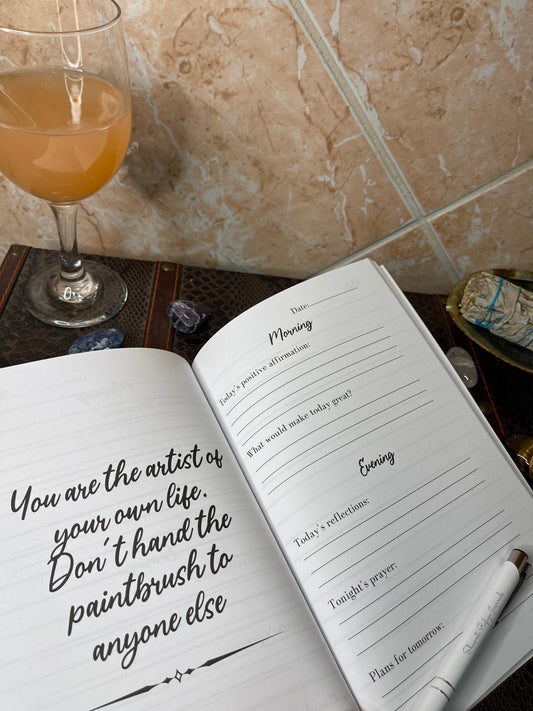 You are the artist of
your own life.
Don't hand the
paintbrush to
anyone else
Date:
Morning
Today's positive affirmation:
What would make today great?
Evening
Today's reflections:
Tonight's prayer:
Plans for tomorrow: